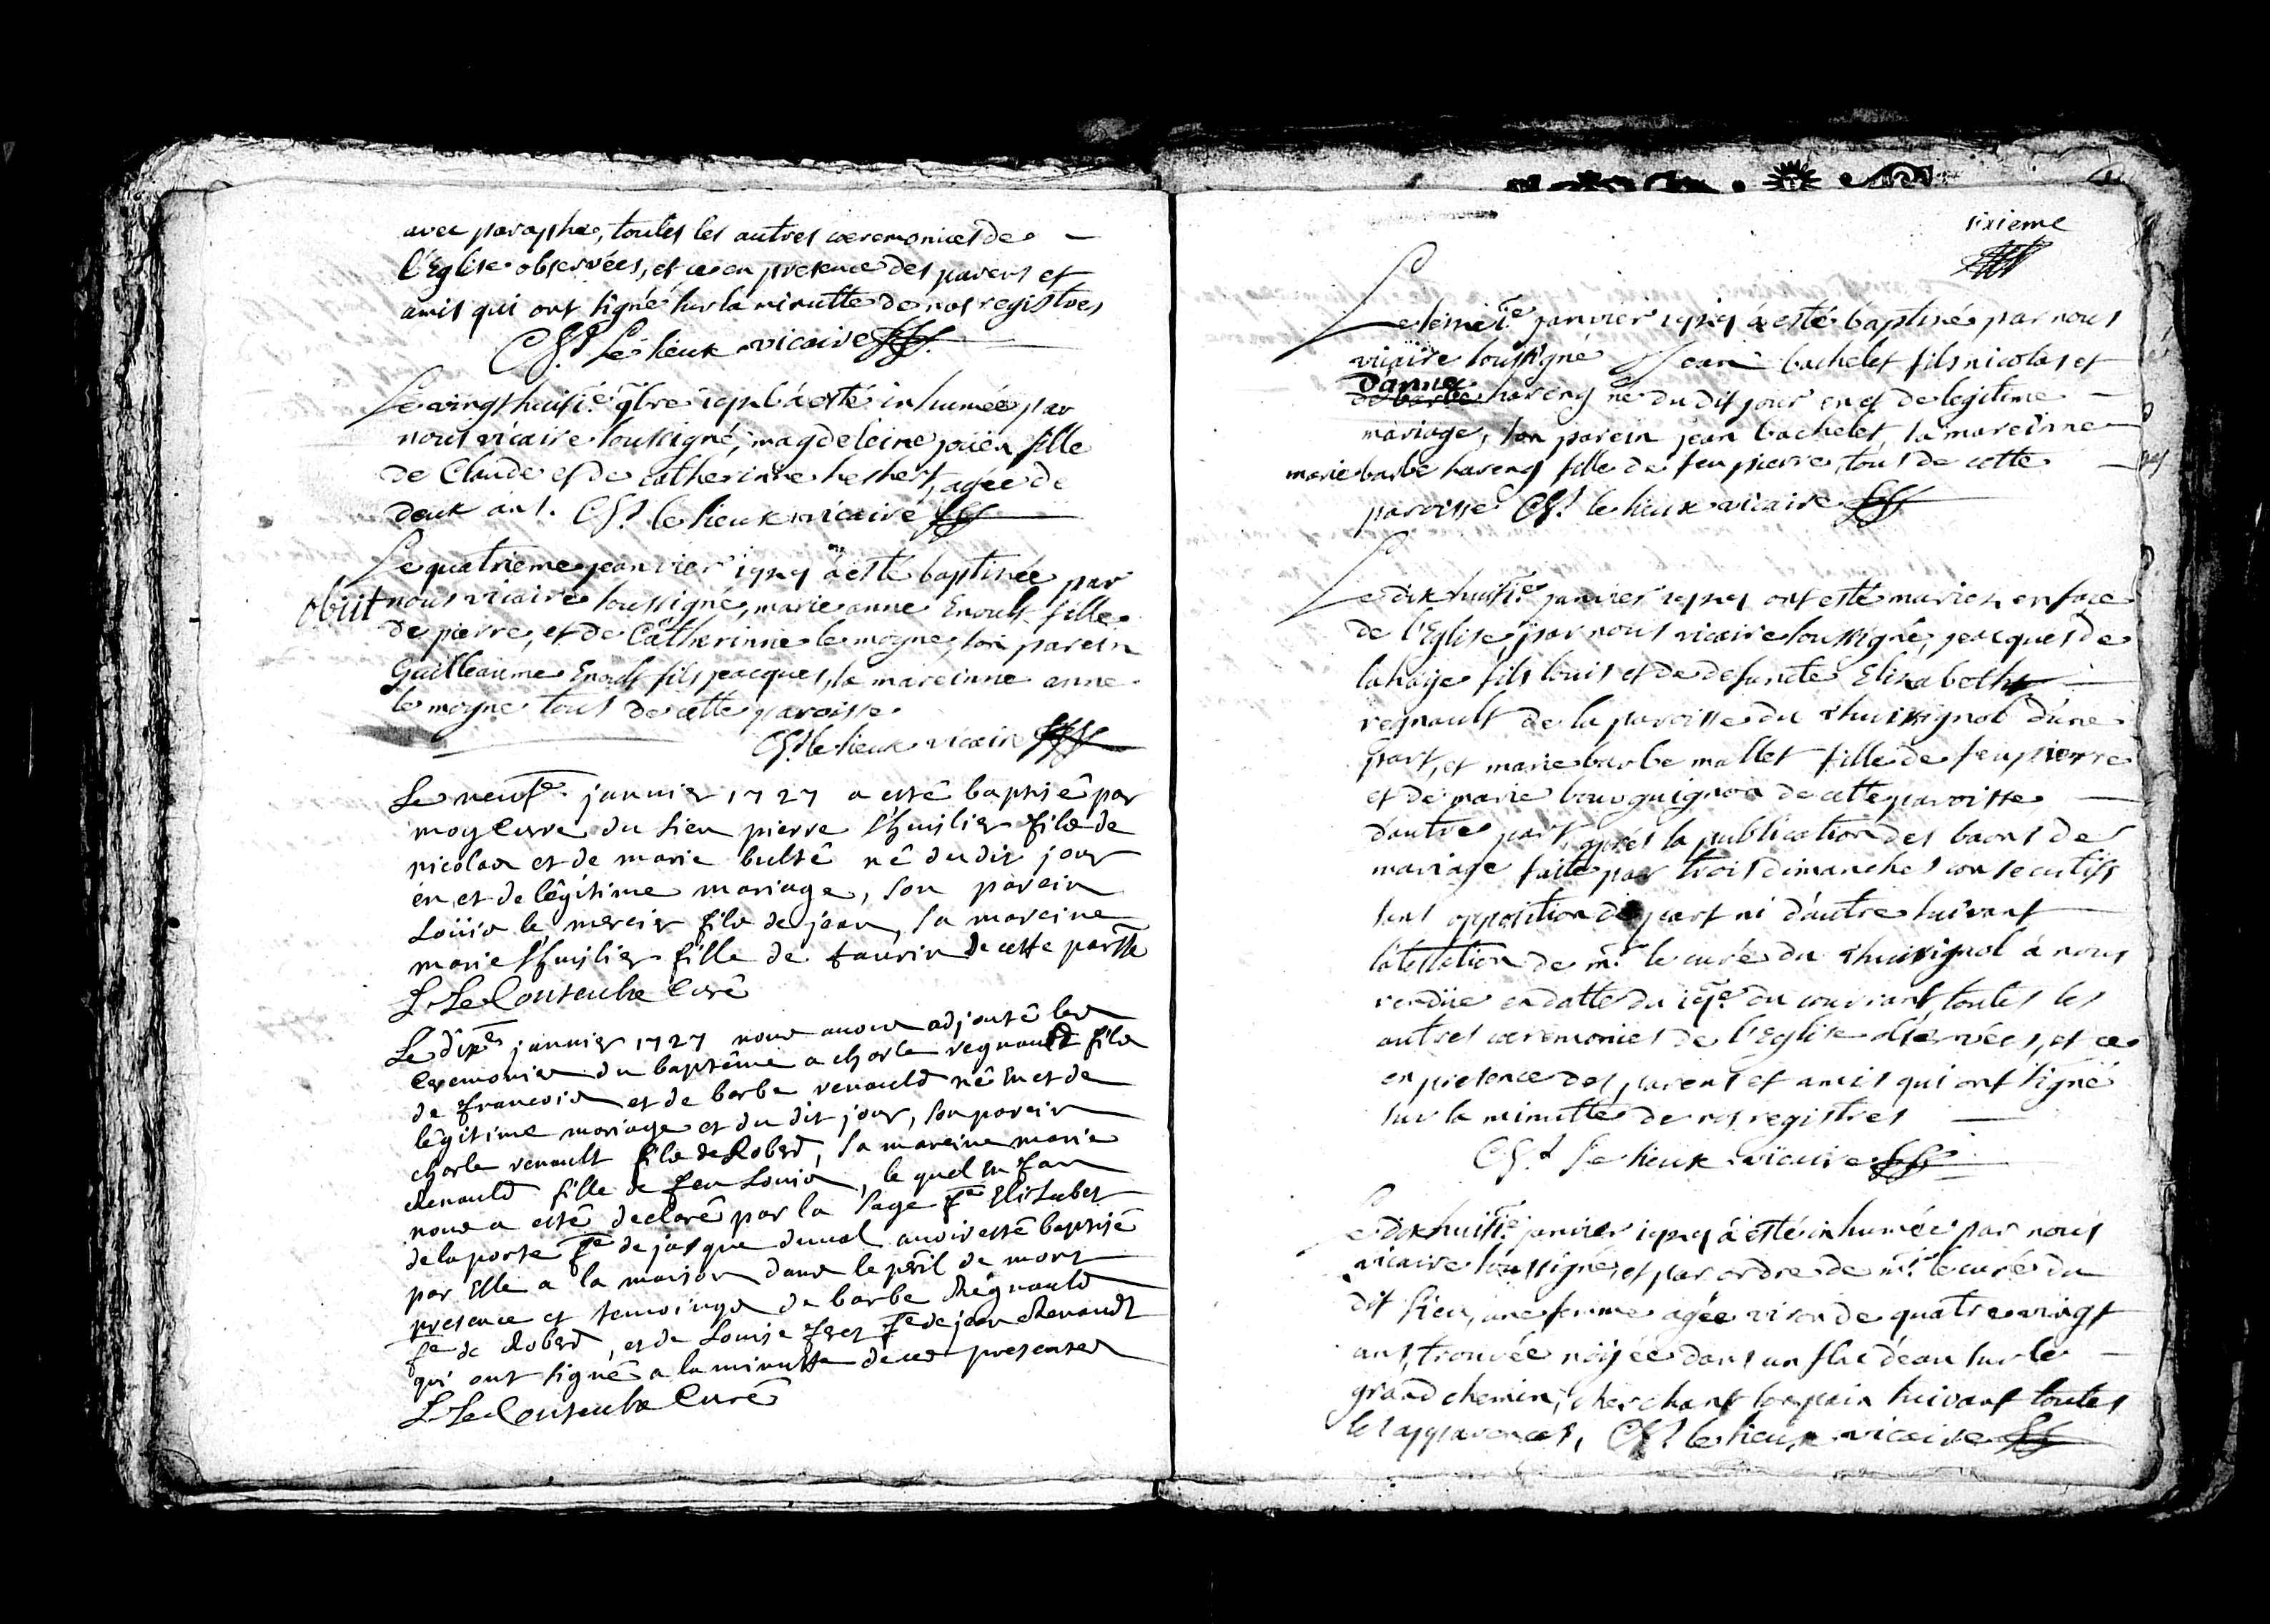 avec paraphe, toutes les autres cœremonies de
l'Eglise observées, et ce en presence des parens et
amis qui ont signé sur la minutte de nos registres
Ch. Le lieux vicaire
Le vingt huiti.e 9bre 1726 à esté inhumée par
nous vicaire soussigné, magdeleine joüen fille
de Claude et de Catherinne heshert, agée de
deux ans. Ch. le lieux vicaire
Le quatrieme jeanvier 1727 à esté baptisée par
obiit nous vicaire soussigné, marie anne Enoult fille
de pierre, et de Catherinne le moyne, son parein
Guilleaume Enoult fils jeacques, la mareinne anne
le moyne tous de cette paroisse
Ch. le lieux vicaire
Le neufe janvier 1727 a esté baptisé par
moy Curé du lieu pierre l'huilier fils de
nicolas et de marie bulté né du dit jour
en et de légitime mariage, son parein
Loüis le mercier fils de jean, sa mareine
marie l'huilier fille de taurin de cette parsse
L. Le Couteulx Curé
Le dixe janvier 1727 nous avons adjouté les
Ceremonies du baptême a charle regnault fils
de francois et de barbe renauld né en et de
légitime mariage et du dit jour, son parein
charle renault fils de Roberd, sa mareine marie
Renauld fille de feu Louis, le quel enfan
nous a esté declaré par la sage fe Elisabet
de la porte fe de jasque duval avoir esté baptisé
par Elle a la maison dans le péril de mort
presence et temoinage de barbe Régnauld
fe de Roberd, et de Louise feret fe de jean Renauld
qui ont signé a la minutte de ces presentes
L. Le Couteulx Curé
sixieme
Le janvier 1727 à esté baptisé par nous
vicaire soussigné Jean bachelet fils nicolas et
d'anne
de barbe hareng né du dit jour en et de legitime
mariage, son parein jean bachelet, sa mareinne
marie barbe hareng fille de feu pierre, tous de cette
paroisse Ch. le lieux vicaire
Le dix huiti.e janvier 1727 ont esté mariez en face
de l'Eglise, par nous vicaire soussigné, jeacques de
lahaye fils louis et de defuncte Elizabeth
regnault de la paroisse du Thuissignol d'une
part, et marie barbe mallet fille de feu pierre
et de marie bourguignon de cette paroisse
d'autre part, apres la publication des bacns de
mariage faite par trois dimanches consecutifs
sans opposition de part ni d'autre suivant
l'atestation de mr. le curé du Thuissignol à nous
rendüe en datte du du courant, toutes les
autres cœremonies de l'Eglise observées, et ce
en presence des parens et amis qui ont signé
sur la minutte de nos registres
Ch. Le lieux vicaire
Le dix huiti.e janvier 1727 à esté inhumée par nous
vicaire soussigné, et par ordre de mr. le curé du
dit lieu, une femme agée viron de quatre vingt
ans, trouvée noyée dans un flac d'eau sur le
grand chemin, cherchant son pain suivant toutes
les apparences, Ch. le lieux vicaire